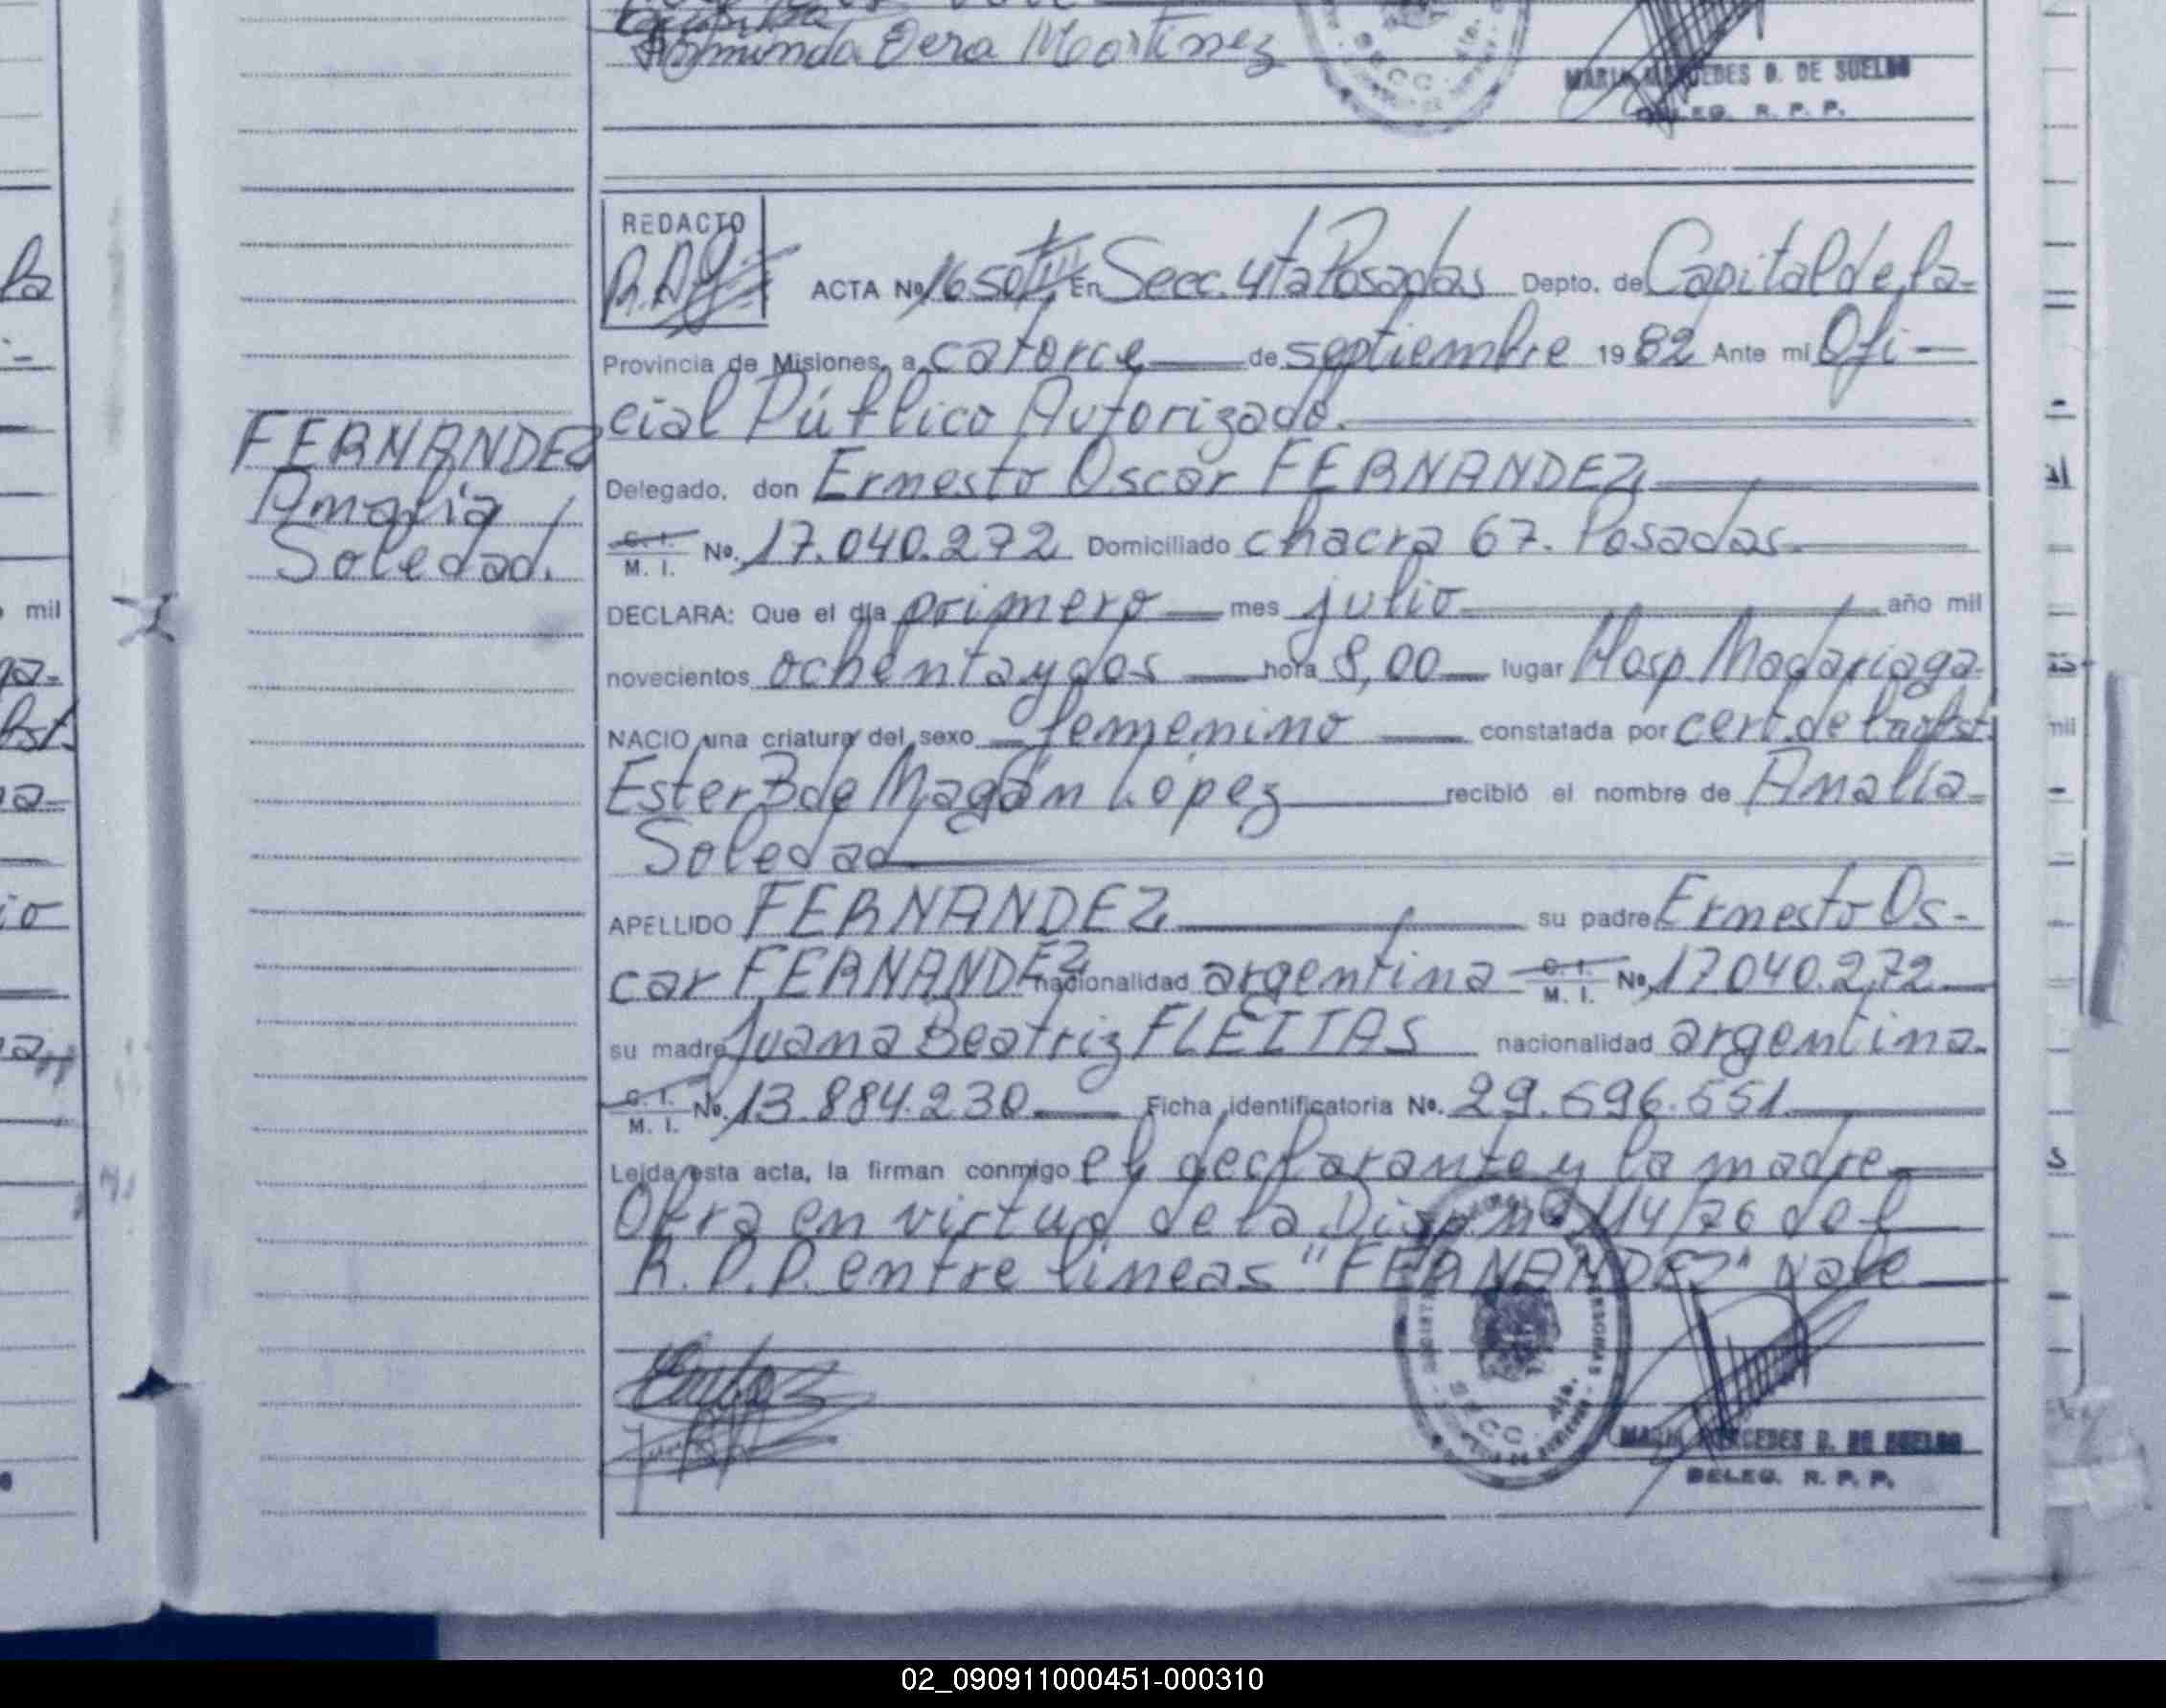 Armunda Vera Martinez
MARIA MERCEDES D. DE SUELDO
DELEG. R. P. P.
REDACTO
ACTA Nº 1650 En Secc. 4ta Posadas Depto. de Capital de la-
Provincia de Misiones, a catorce de septiembre 1982 Ante mi Ofi-
cial Público Autorizado.
FERNANDEZ
Amalia
Soledad.
Delegado, don Ernesto Oscar FERNANDEZ
C. I. M. I. Nº. 17.040.272 Domiciliado chacra 67. Posadas.
DECLARA: Que el día primero mes julio año mil
novecientos ochenta y dos hora 8,00 lugar Hosp Madariaga
NACIO una criatura del sexo femenino constatada por cert. de la obst.
Ester B de Magán López recibió el nombre de Analía
Soledad
APELLIDO FERNANDEZ su padre Ernesto Os-
car FERNANDEZ nacionalidad argentina C. I. M. I. Nº 17.040.272
su madre Juana Beatriz FLEITAS nacionalidad argentina
C. I. M. I. Nº. 13.884.230 Ficha identificatoria Nº. 29.696.551
Leída esta acta, la firman conmigo el declarante y la madre
Obra en virtud de la Disp. nº 114/76 del
R.P.P. entre lineas "FERNANDEZ" Vale
MARIA MERCEDES D. DE SUELDO
DELEG. R. P. P.
02_090911000451-000310